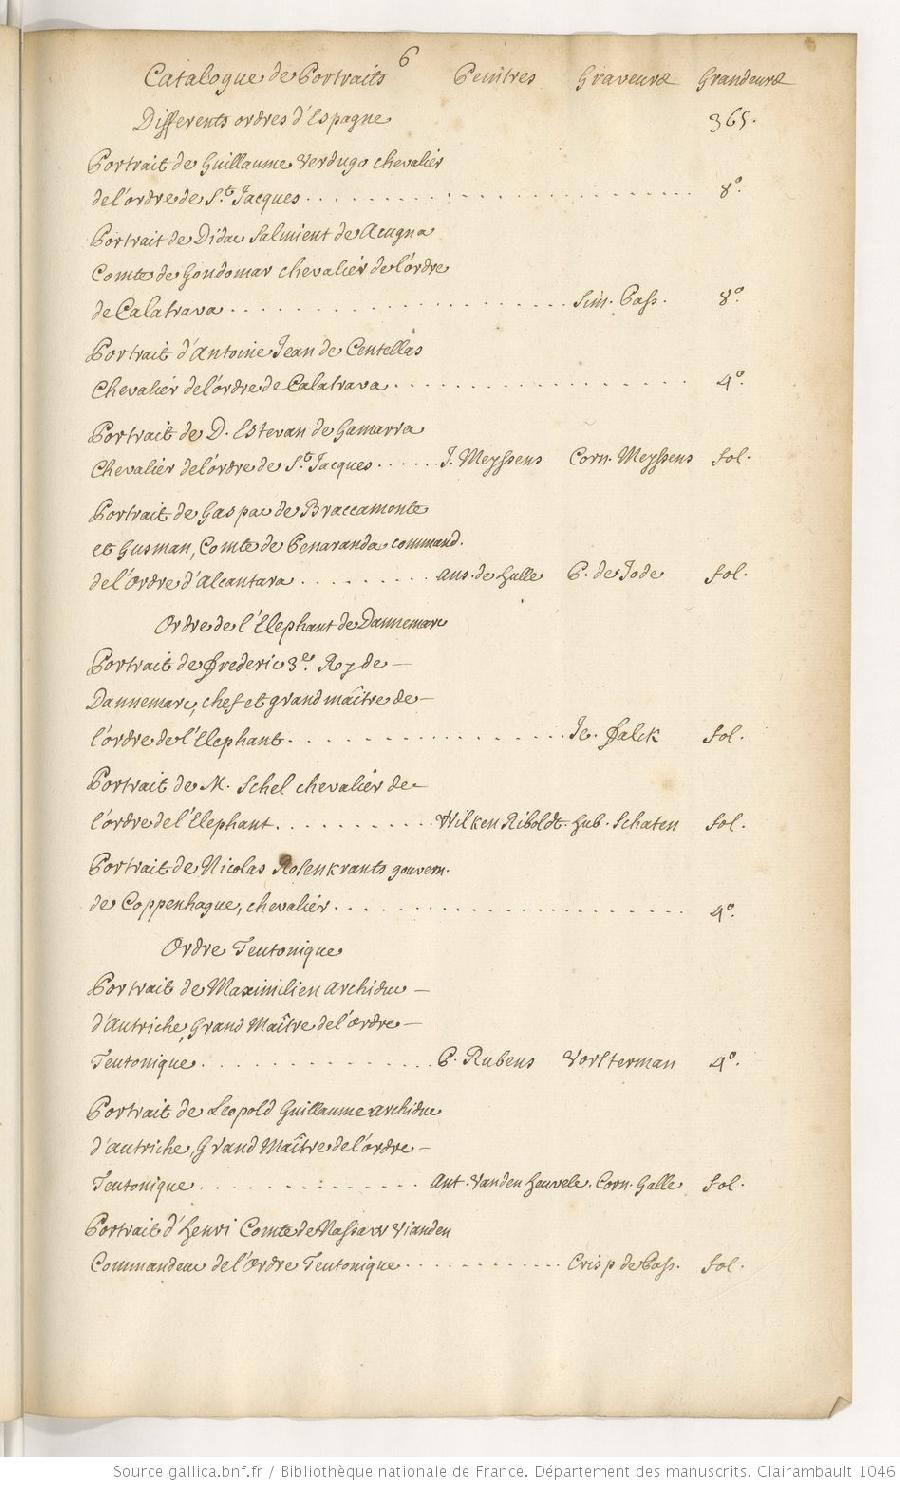 6
Catalogue de Portraits Peintres Graveurs Grandeurs
Differents ordres d'Espagne 365.
Portrait de Guillaume Verdugo chevalier
de l'ordre de St. Jacques. . . . . . . . . . . 8°.
Portrait de Didac Salmient de Acugna
Comte de Gondomar chevalier de l'ordre
de Calatrava . . . . . . . . . . Sim. Pass. 8°.
Portrait d'Antoine Jean de Centellas
Chevalier de l'ordre de Calatrava . . . . . . . . . . 4°.
Portrait de D. Estevan de Gamarra
Chevalier de l'ordre de St. Jacques. . . . . J. Meyssens Corn. Meyssens fol.
Portrait de Gaspar de Braccamonte
et Gusman, Comte de Penaranda command.
de l'Ordre d'Alcantara . . . . . . . . . ans. de hulle P. de Jode fol.
Ordre de l'Elephant de Dannemarc
Portrait de Frederic 3e. Roy de —
Dannemarc, chef et grand maître de —
l'ordre de l'Elephant . . . . . . . . . . Je. Falck fol.
Portrait de M. Schel chevalier de —
l'ordre de l'Elephant . . . . . . . . . Wilken Riboldt. hub. Schaten fol.
Portrait de Nicolas Rosenkrants gouvern.
de Coppenhague, chevalier . . . . . . . . . . 4°.
Ordre Teutonique
Portrait de Maximilien archiduc —
d'autriche, Grand Maître de l'ordre —
Teutonique . . . . . . . . . . P. Rubens Vorsterman 4°.
Portrait de Leopold Guillaume archiduc
d'autriche, Grand Maître de l'ordre —
Teutonique . . . . . . . . . . Ant. Vanden heuvele. Corn. Galle fol.
Portrait d'henri Comte de Nassaw Vianden
Commandeur de l'Ordre Teutonique . . . . . . . . . . Crisp de Pass. fol.
Source gallica.bnf.fr / Bibliothèque nationale de France. Département des manuscrits. Clairambault 1046